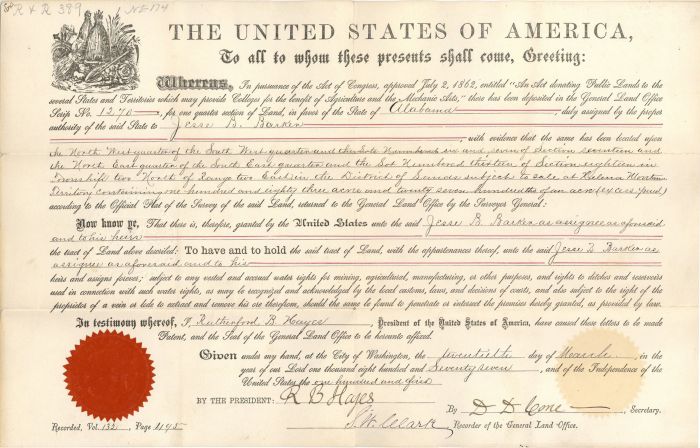 R & R 389 NE174
THE UNITED STATES OF AMERICA,
To all to whom these presents shall come, Greeting:
Whereas, In pursuance of the Act of Congress, approved July 2, 1862, entitled "An Act donating Public Lands to the
several States and Territories which may provide Colleges for the benefit of Agriculture and the Mechanic Arts," there has been deposited in the General Land Office
Scrip No. 1270, for one quarter section of Land, in favor of the State of Alabama, duly assigned by the proper
authority of the said State to Jesse B. Barker
, with evidence that the same has been located upon
the North West quarter of the South West quarter and the Lots Numbered six and seven of Section seventeen and
the North East quarter of the South East quarter and the Lot Numbered thirteen of Section eighteen in
Township two North of Range two East in the District of Lands subject to sale at Helena Montana
Territory containing one hundred and eighty three acres and twenty seven hundredths of an acre (excess paid)
according to the Official Plat of the Survey of the said Land, returned to the General Land Office by the Surveyor General:
Now know ye, That there is, therefore, granted by the United States unto the said Jesse B. Barker as assignee as aforesaid
and to his heirs
the tract of Land above described: To have and to hold the said tract of Land, with the appurtenances thereof, unto the said Jesse B. Barker as
assignee as aforesaid and to his
heirs and assigns forever; subject to any vested and accrued water rights for mining, agricultural, manufacturing, or other purposes, and rights to ditches and reservoirs
used in connection with such water rights, as may be recognized and acknowledged by the local customs, laws, and decisions of courts, and also subject to the right of the
proprietor of a vein or lode to extract and remove his ore therefrom, should the same be found to penetrate or intersect the premises hereby granted, as provided by law.
In testimony whereof, I, Rutherford B. Hayes, President of the United States of America, have caused these letters to be made
Patent, and the Seal of the General Land Office to be hereunto affixed.
Given under my hand, at the City of Washington, the twentieth day of March, in the
year of our Lord one thousand eight hundred and Seventy seven, and of the Independence of the
United States the one hundred and first
BY THE PRESIDENT: R B Hayes
By D D Cone, Secretary.
S. W. Clark, Recorder of the General Land Office.
Recorded, Vol. 132, Page 495